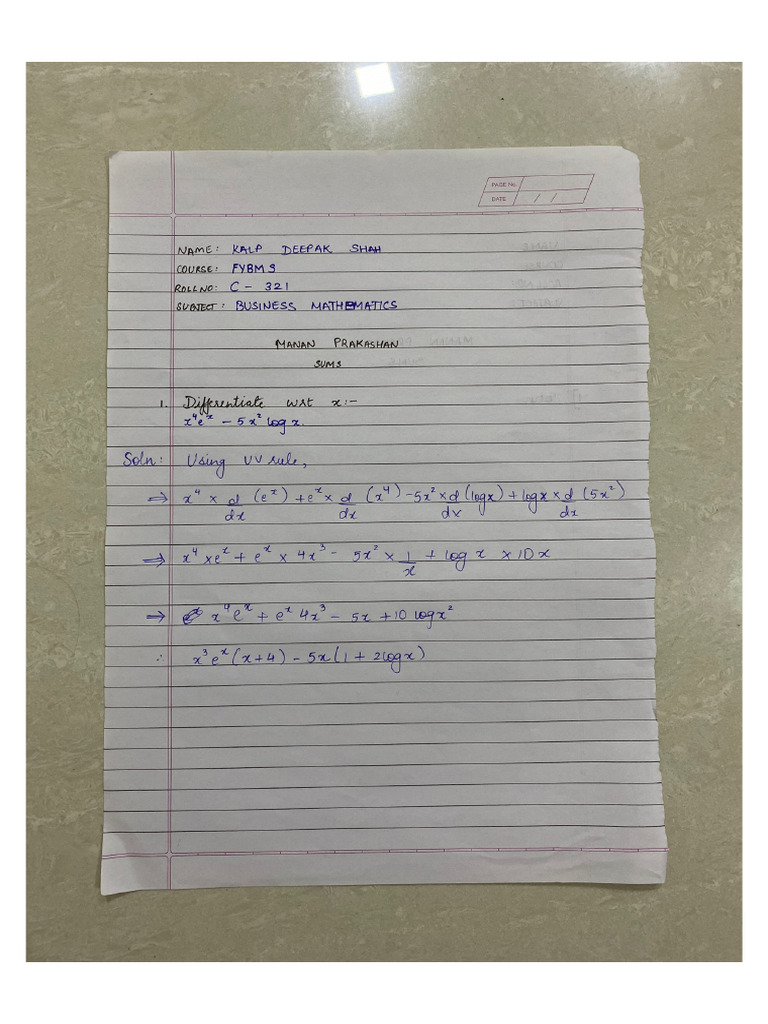 PAGE No.
DATE / /
NAME: KALP DEEPAK SHAH
COURSE: FYBMS
ROLL NO: C - 321
SUBJECT: BUSINESS MATHEMATICS
MANAN PRAKASHAN
SUMS
1. Differentiate wrt x:-
x⁴eˣ - 5x² log x.
Soln: Using UV rule,
⇒ x⁴ × d/dx (eˣ) + eˣ × d/dx (x⁴) - 5x² × d/dx (logx) + logx × d/dx (5x²)
⇒ x⁴ × eˣ + eˣ × 4x³ - 5x² × 1/x + log x × 10x
⇒ x⁴eˣ + eˣ 4x³ - 5x + 10 logx²
∴ x³eˣ(x+4) - 5x(1 + 2logx)